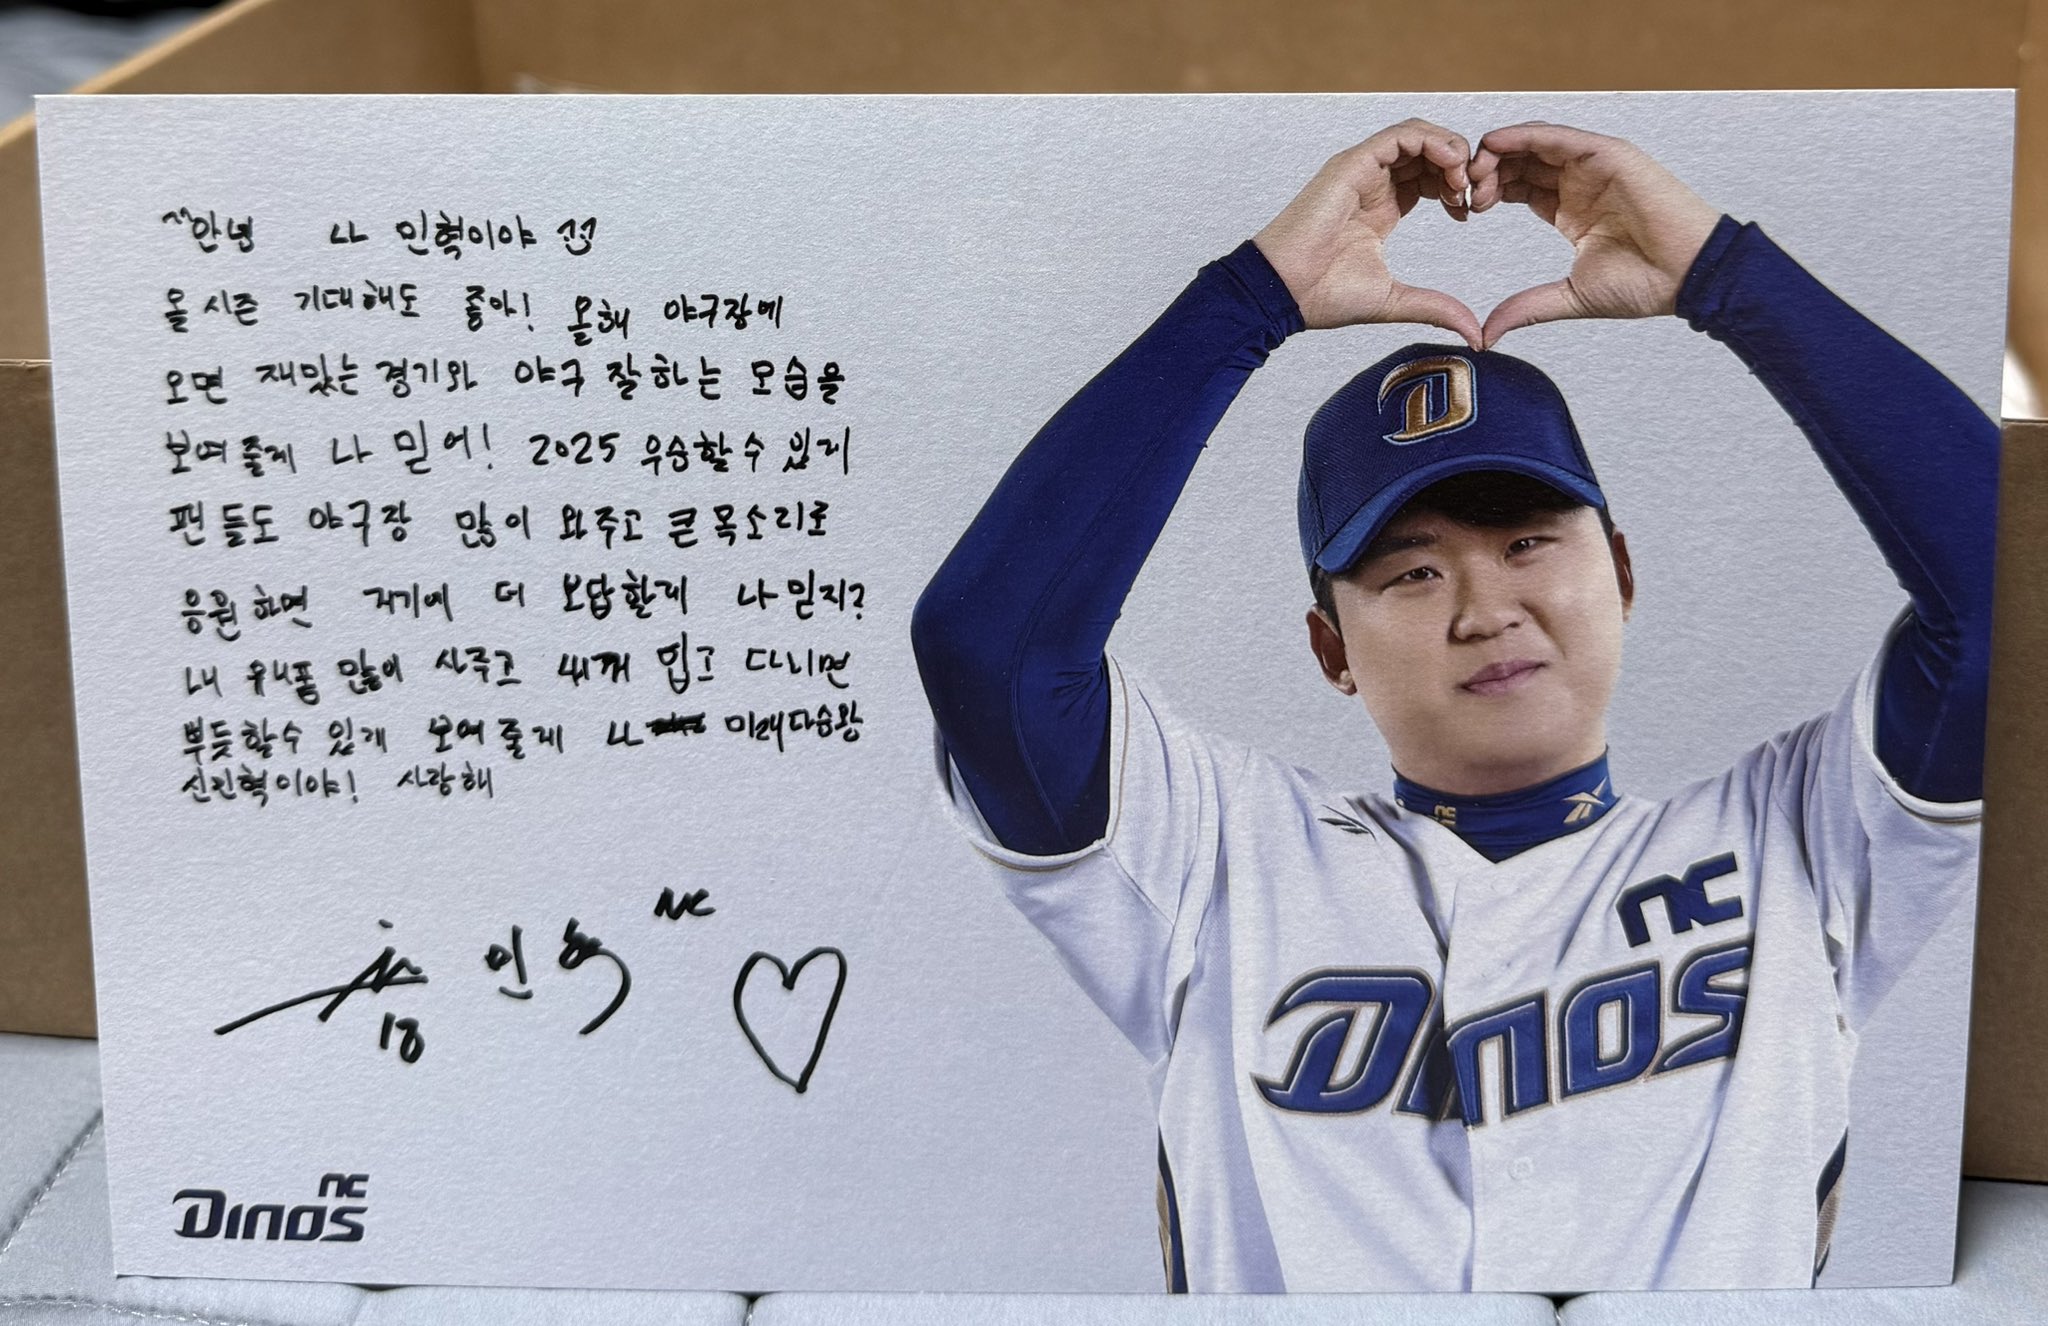 안녕 나 민혁이야
올시즌 기대해도 좋아! 올해 야구장에
오면 재밌는 경기와 야구 잘하는 모습을
보여줄게 나 믿어! 2025 우승할수 있게
팬들도 야구장 많이 와주고 큰 목소리로
응원하면 거기에 더 보답할게 나 믿지?
내 유니폼 많이 사주고 입고 다니면
뿌듯할수 있게 보여줄게 나 미래다승왕
신민혁이야! 사랑해
NC
민혁
18
nc
Dinos
D
nc
Dinos